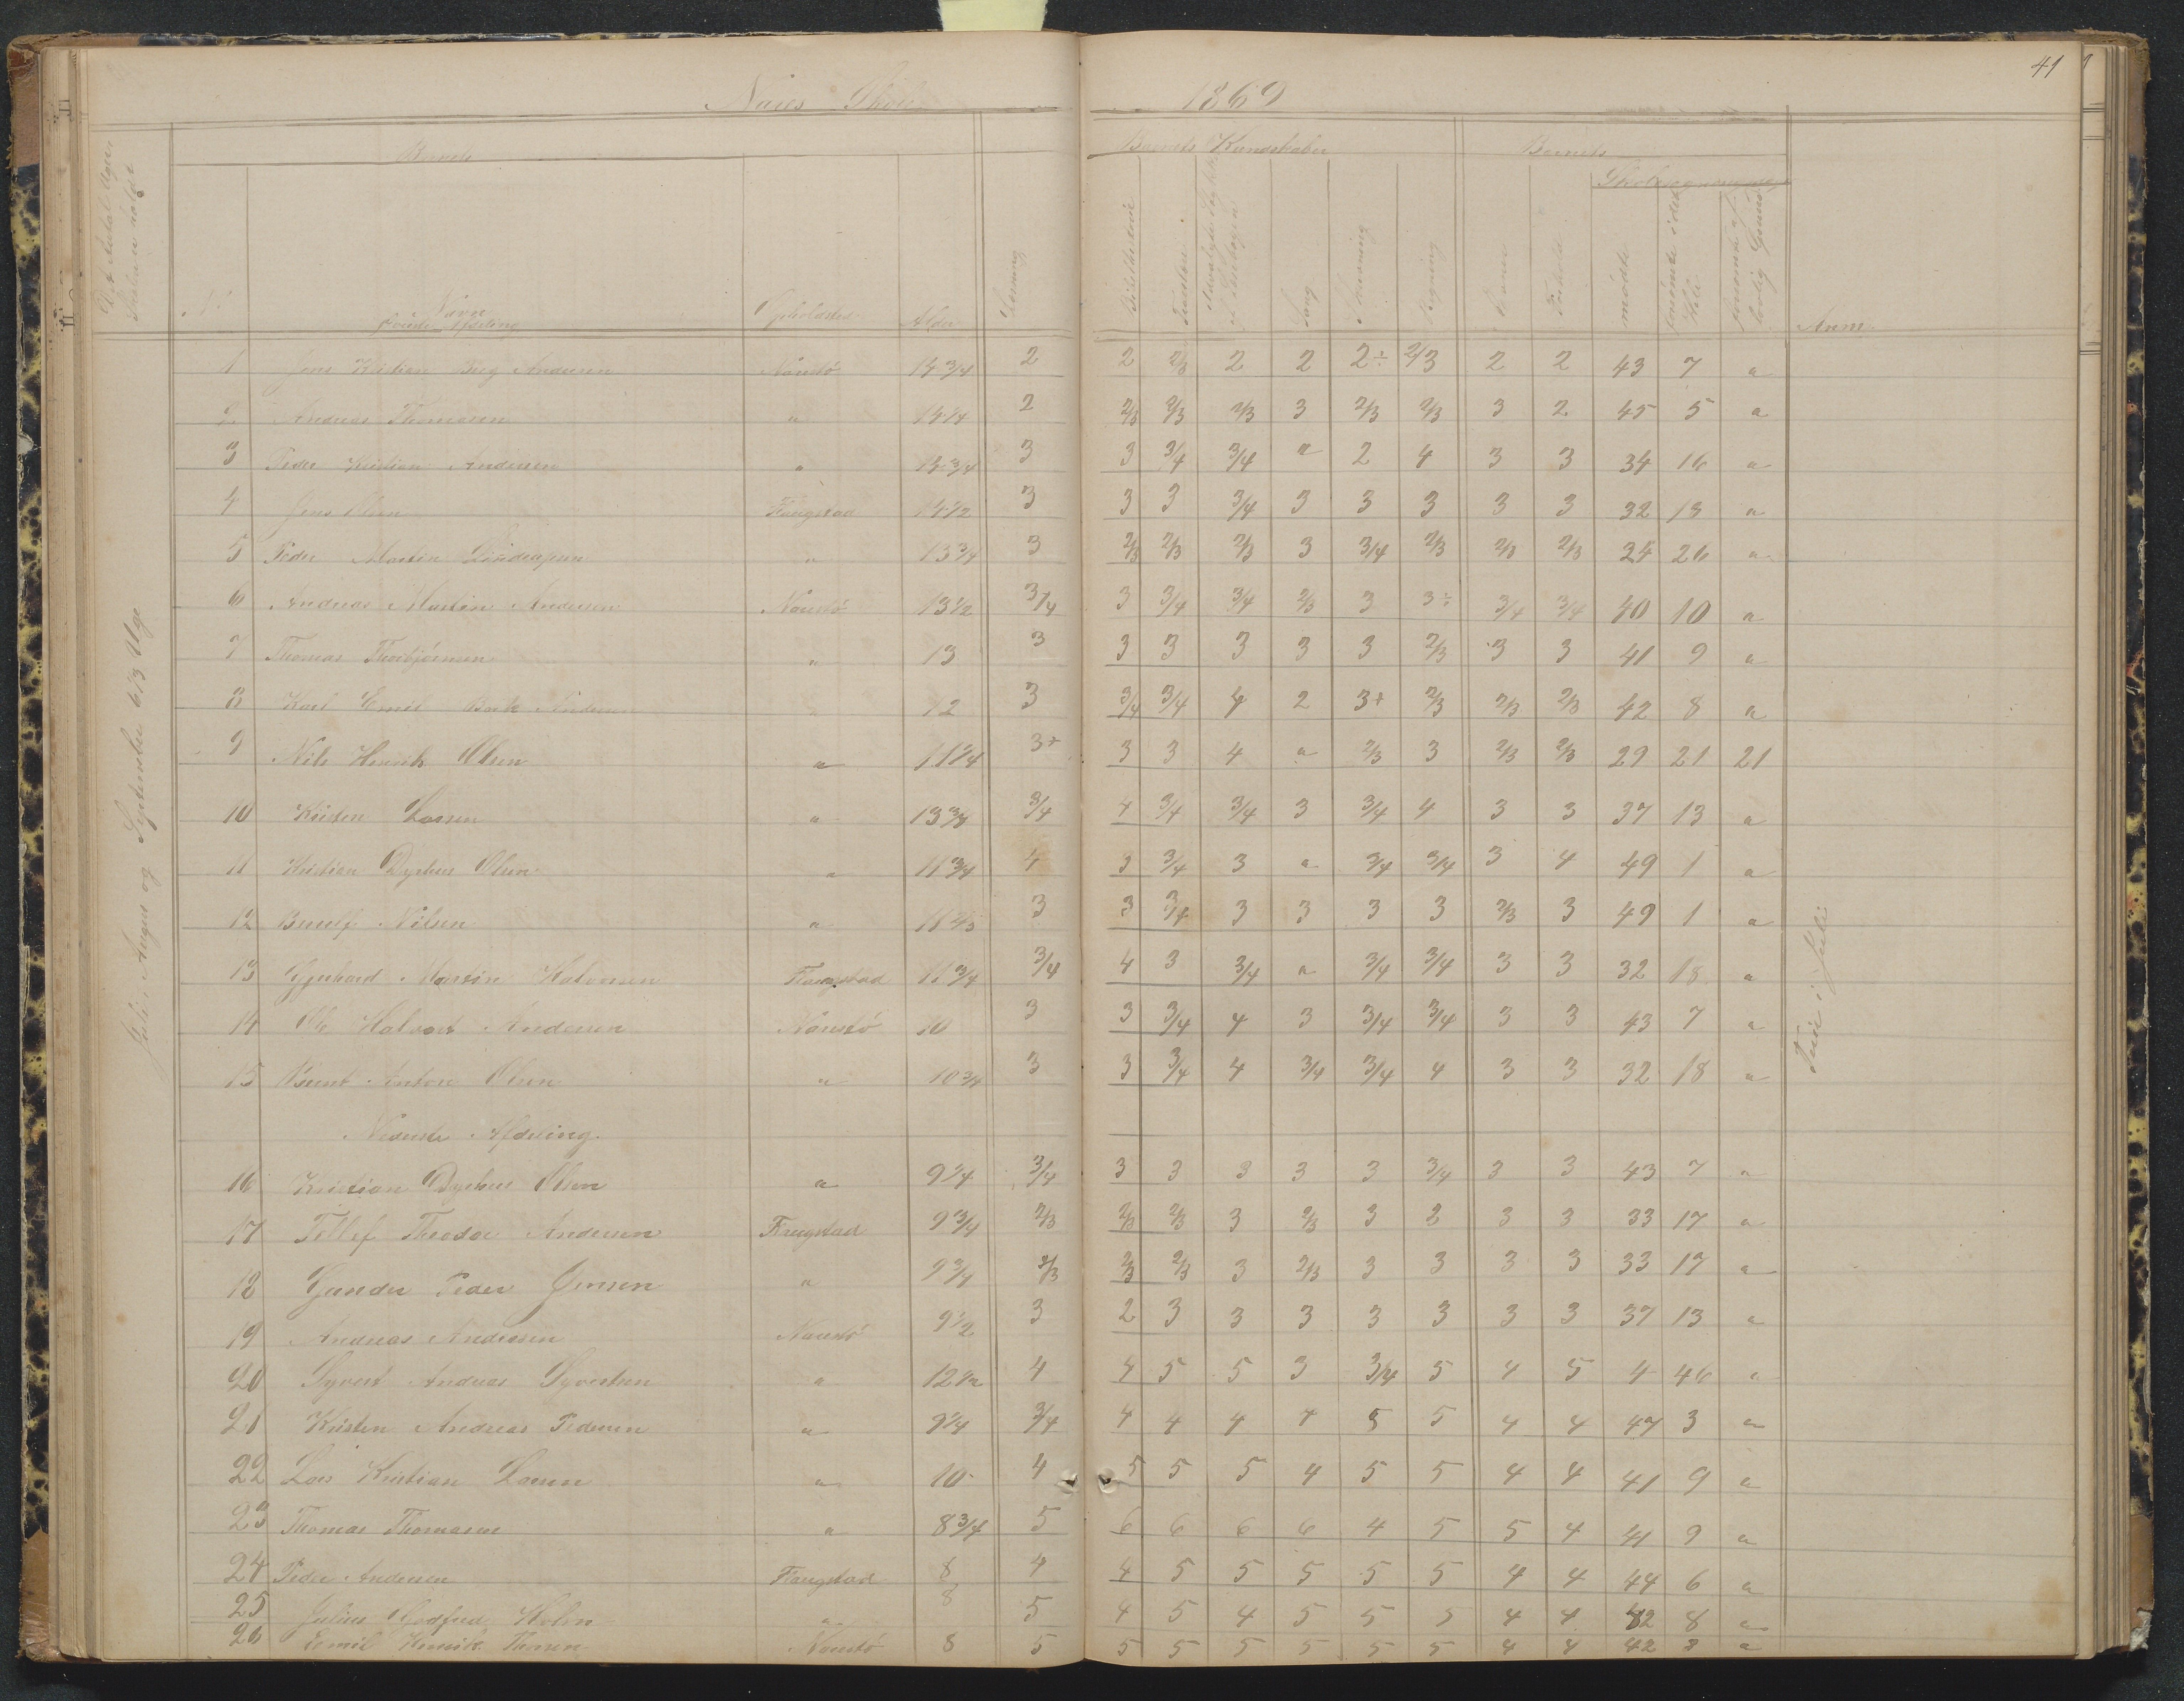 41
Næs Skole 1869
Barnets
Barnets Kundskaber
Barnets
Skolesøgning
Det Antal Uger, Skolen er holdt
No
Navn
Øverste Afdeling
Opholdssted
Alder
Læsning
Bibelhistorie
Troeslære
Sang
Skrivning
Regning
Evner
Forhold
mødte
forsømte i det Hele
forsømte af lovlig Grund
Anm.
1 Jens Kristian Berg Andersen Næsstø 14 3/4 2 2 2/3 2 2 2÷ 2/3 2 2 43 7 "
2 Andreas Thomasen " 14 1/4 2 2/3 2/3 2/3 3 2/3 2/3 3 2 45 5 "
3 Peder Kristian Andersen " 14 3/4 3 3 3/4 3/4 " 2 4 3 3 34 16 "
4 Jens Olsen Flangstad 14 1/2 3 3 3 3/4 3 3 3 3 3 32 18 "
5 Peder Martin " 13 3/4 3 2/3 2/3 2/3 3 3/4 2/3 2/3 2/3 24 26 "
6 Andreas Martin Andersen Næsstø 13 1/2 3/4 3 3/4 3/4 2/3 3 3÷ 3/4 3/4 40 10 "
7 Thomas Thorbjørnsen " 13 3 3 3 3 3 3 2/3 3 3 41 9 "
8 Karl Emil Andersen " 12 3 3/4 3/4 4 2 3+ 2/3 2/3 2/3 42 8 "
9 Nils Henrik Olsen " 11 1/4 3+ 3 3 4 " 2/3 3 2/3 2/3 29 21 21
10 Kristen Larsen " 13 3/4 3/4 4 3/4 3/4 3 3/4 4 3 3 37 13 "
11 Kristian Dyrhus Olsen " 11 3/4 4 3 3/4 3 " 3/4 3/4 3 4 49 1 "
12 Nilsen " 11 3 3 3/4 3 3 3 3 2/3 3 49 1 "
13 Gjerhard Martin Halvorsen Flangstad 11 3/4 3/4 4 3 3/4 " 3/4 3/4 3 3 32 18 "
14 Ole Halvor Andersen Næsstø 10 3 3 3/4 4 3 3/4 3/4 3 3 43 7 "
15 Bernt Anton Olsen " 10 3/4 3 3 3/4 4 3/4 3/4 4 3 3 32 18 "
Nederste Afdeling.
16 Kristian Dyrhus Olsen " 9 1/4 3/4 3 3 3 3 3 3/4 3 3 43 7 "
17 Tellef Theodor Andersen Flangstad 9 3/4 2/3 2/3 2/3 3 2/3 3 3 3 3 33 17 "
18 Gunder Peder Jensen " 9 3/4 2/3 2/3 2/3 3 2/3 3 3 3 3 33 17 "
19 Andreas Andersen Næsstø 9 1/2 3 2 3 3 3 3 3 3 3 37 13 "
20 Syvert Andreas Syvertsen " 12 1/2 4 4 5 5 3 3/4 5 4 5 4 46 "
21 Kristen Andreas Pedersen " 9 1/4 3/4 4 4 4 4 5 5 4 4 47 3 "
22 Lars Kristian Larsen " 10 4 5 5 5 4 5 5 4 4 41 9 "
23 Thomas Thomasen " 8 3/4 5 6 6 6 6 4 5 5 4 41 9 "
24 Peder Andersen Flangstad 8 4 4 5 5 5 5 5 4 4 44 6 "
25 Julius Godfred Holm " 8 5 4 5 4 5 5 5 4 4 42 8 "
26 Emil Henrik Næsstø 8 5 5 5 5 5 5 5 4 4 42 8 "
Juli, August og September 6 1/3 Uge
Ferie i Juli